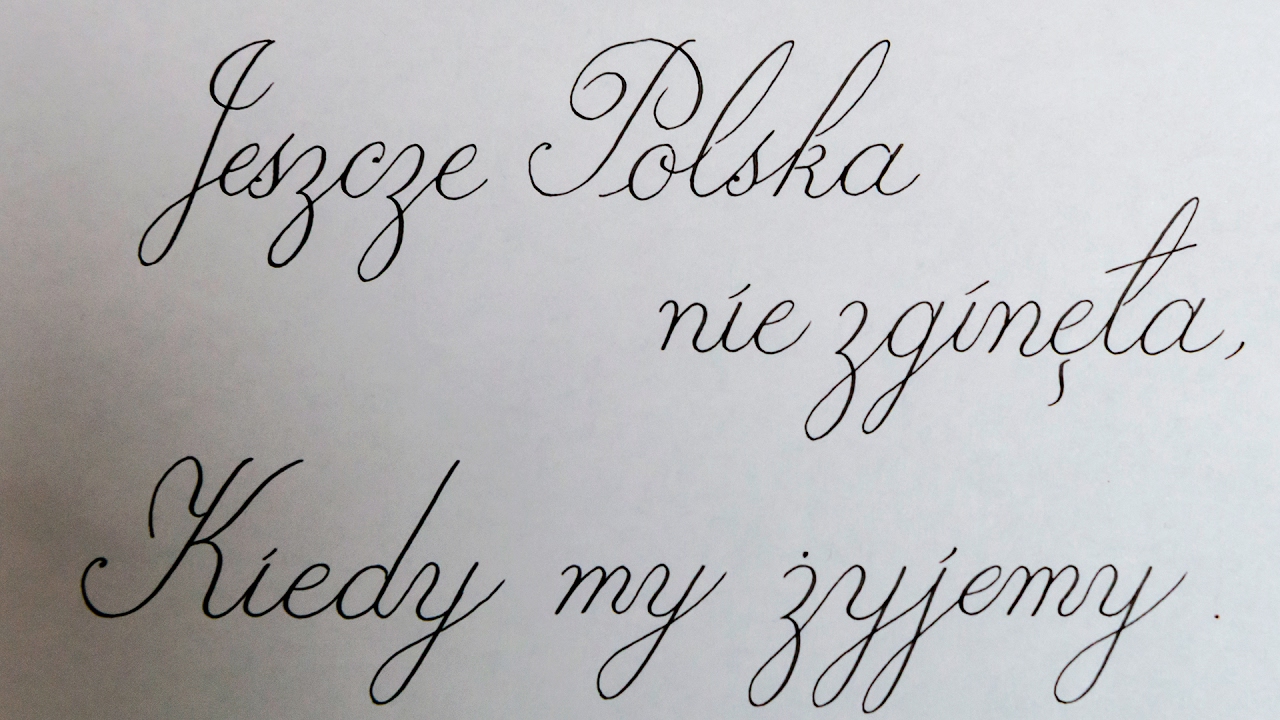 Jeszcze Polska
nie zginęła,
Kiedy my żyjemy.